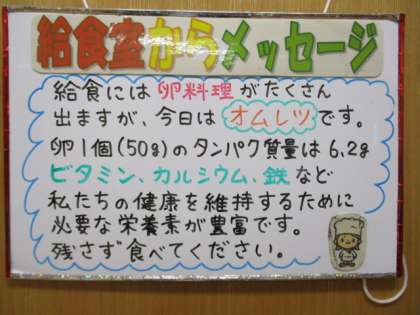 給食室からメッセージ
給食には卵料理がたくさん
出ますが、今日はオムレツです。
卵1個(50g)のタンパク質量は6.2g
ビタミン、カルシウム、鉄など
私たちの健康を維持するために
必要な栄養素が豊富です。
残さず食べてください。